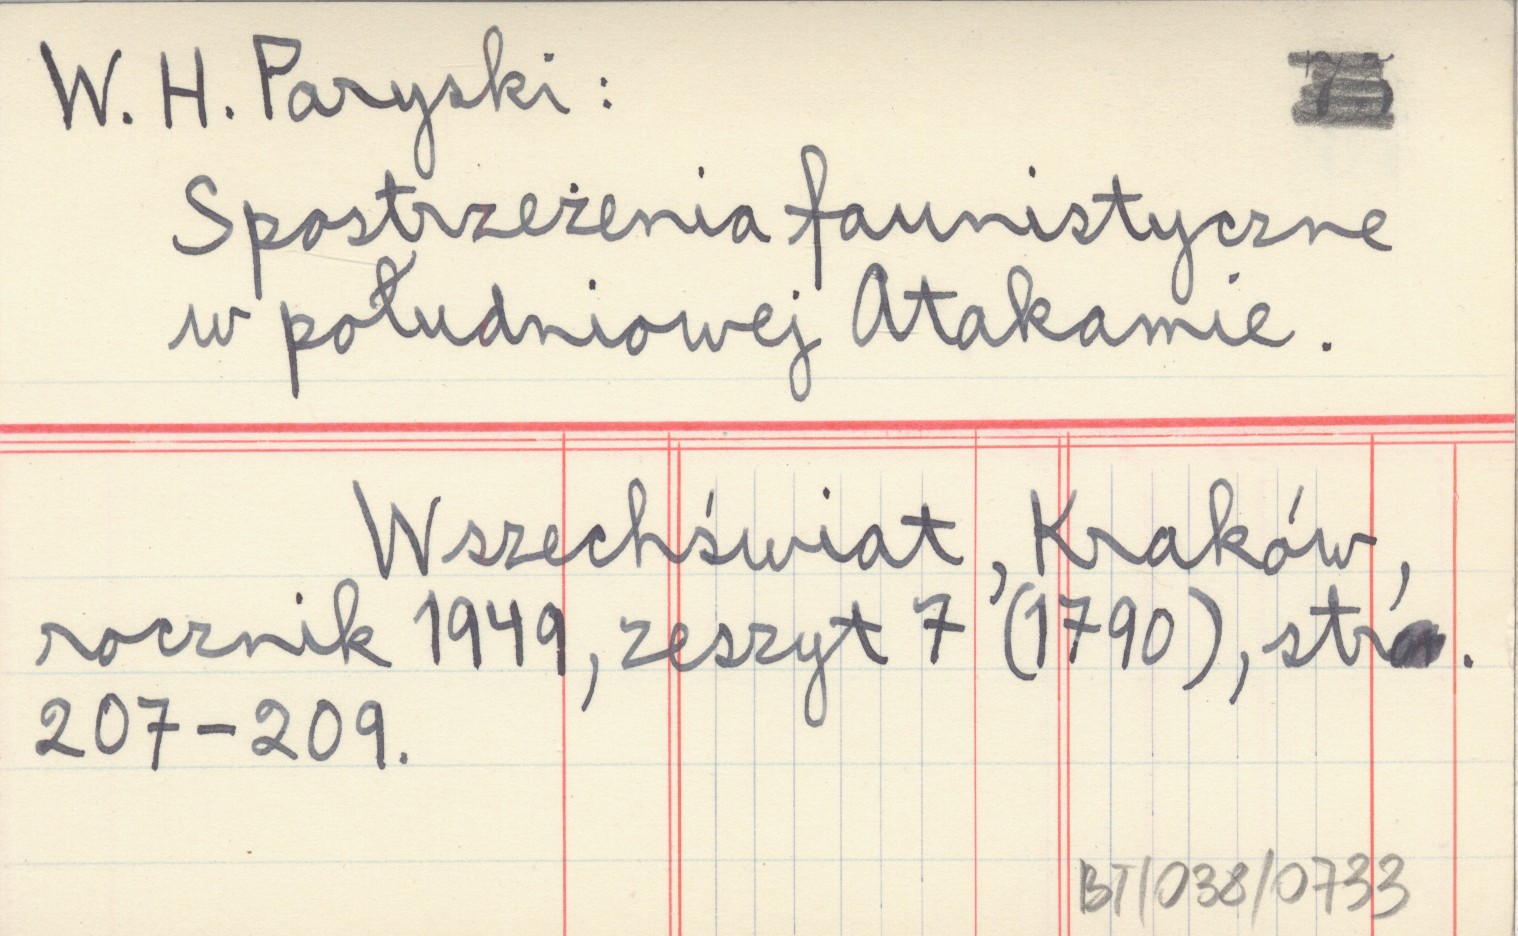 W. H. Paryski:
Spostrzeżenia faunistyczne
w południowej Atakamie.
Wszechświat, Kraków,
rocznik 1949, zeszyt 7 (1790), str.
207-209.
BT/038/0733